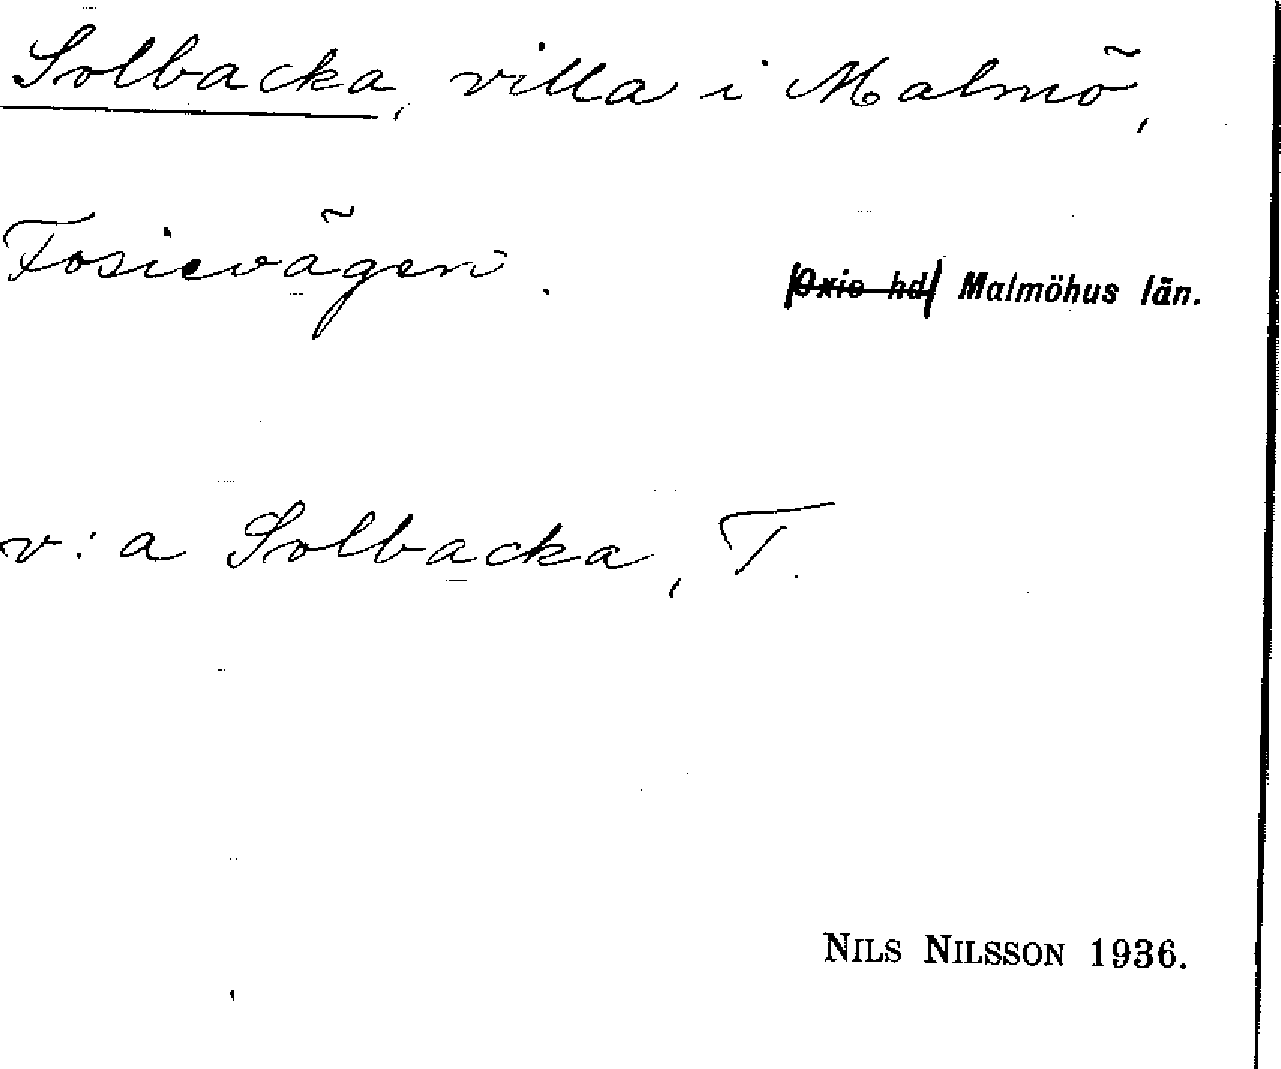 Solbacka, villa i Malmö,
Fosievägen.
Oxie hd Malmöhus län.
v:a Solbacka, T.
NILS NILSSON 1936.